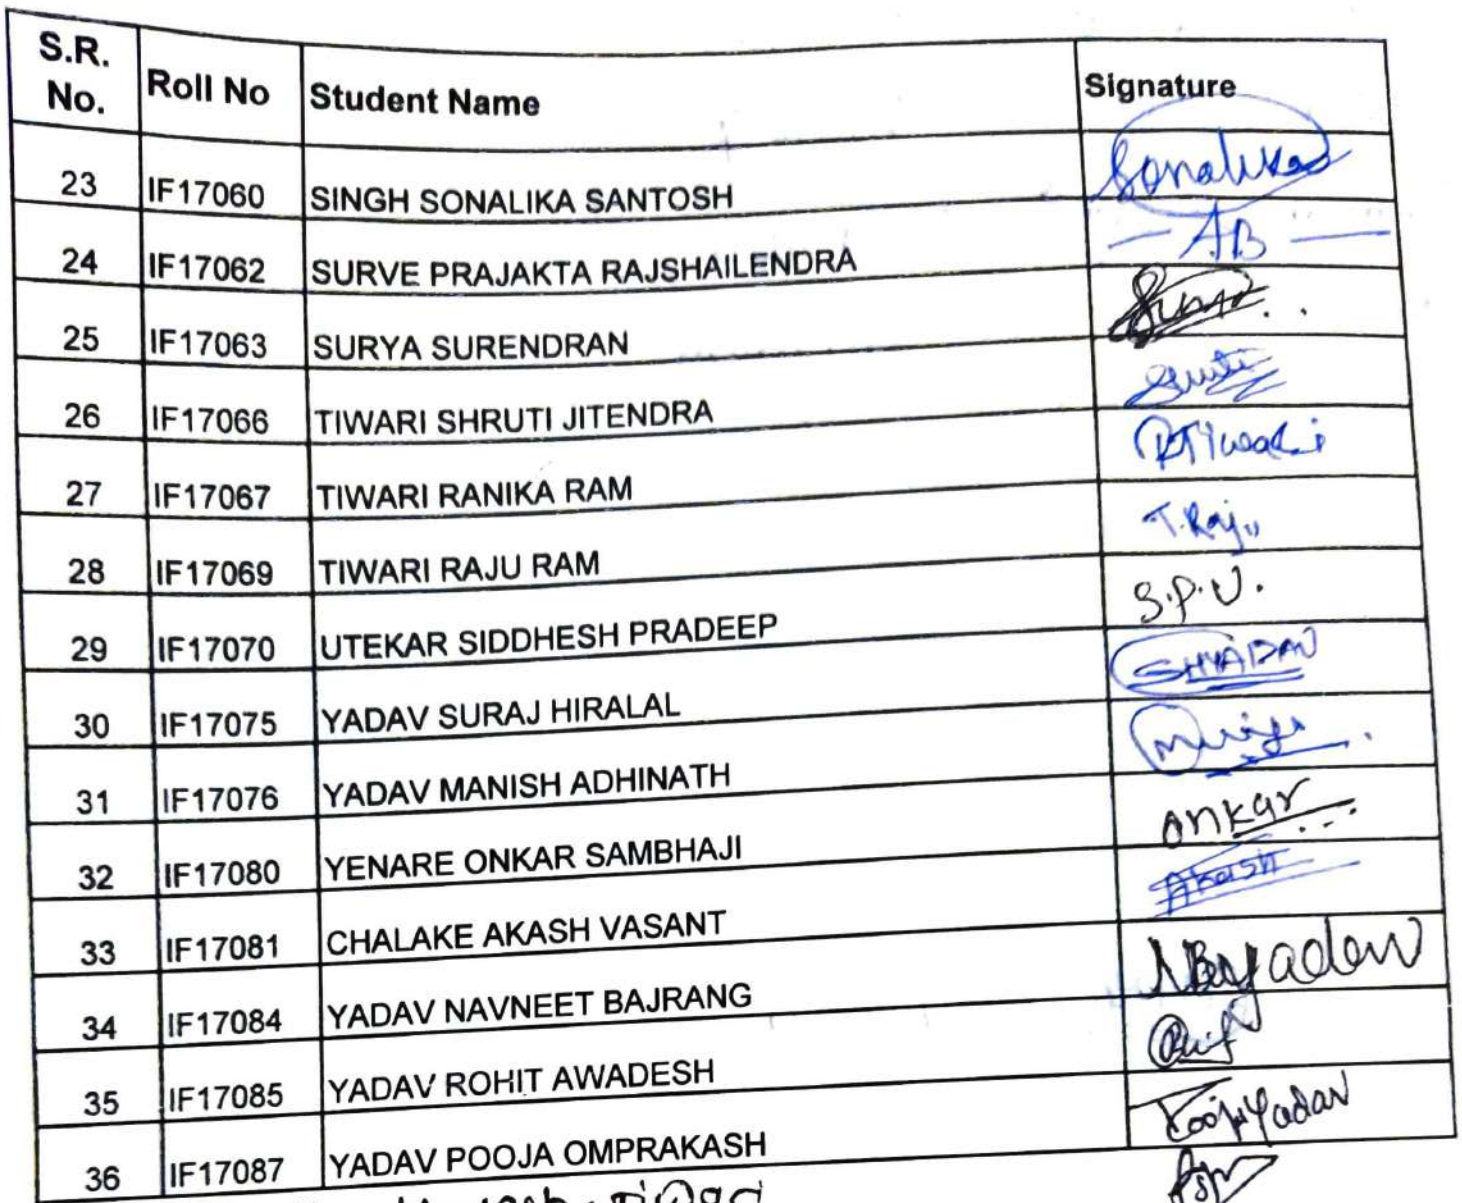 S.R. No. Roll No Student Name Signature
23 IF17060 SINGH SONALIKA SANTOSH Sonalika
24 IF17062 SURVE PRAJAKTA RAJSHAILENDRA — AB —
25 IF17063 SURYA SURENDRAN
26 IF17066 TIWARI SHRUTI JITENDRA
27 IF17067 TIWARI RANIKA RAM RTiwari
28 IF17069 TIWARI RAJU RAM T.Raju
29 IF17070 UTEKAR SIDDHESH PRADEEP S.P.U.
30 IF17075 YADAV SURAJ HIRALAL SHYADAV
31 IF17076 YADAV MANISH ADHINATH
32 IF17080 YENARE ONKAR SAMBHAJI Onkar
33 IF17081 CHALAKE AKASH VASANT Akash
34 IF17084 YADAV NAVNEET BAJRANG NBYadav
35 IF17085 YADAV ROHIT AWADESH
36 IF17087 YADAV POOJA OMPRAKASH PoojaYadav